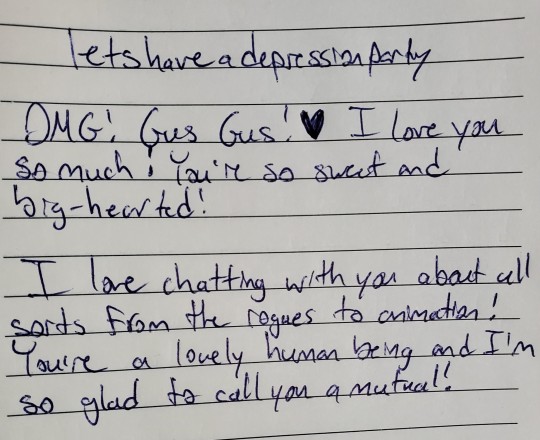 letshaveadepressionparty
OMG! Gus Gus! ♥ I love you
so much! You're so sweet and
big-hearted!
I love chatting with you about all
sorts from the rogues to animation!
You're a lovely human being and I'm
so glad to call you a mutual!